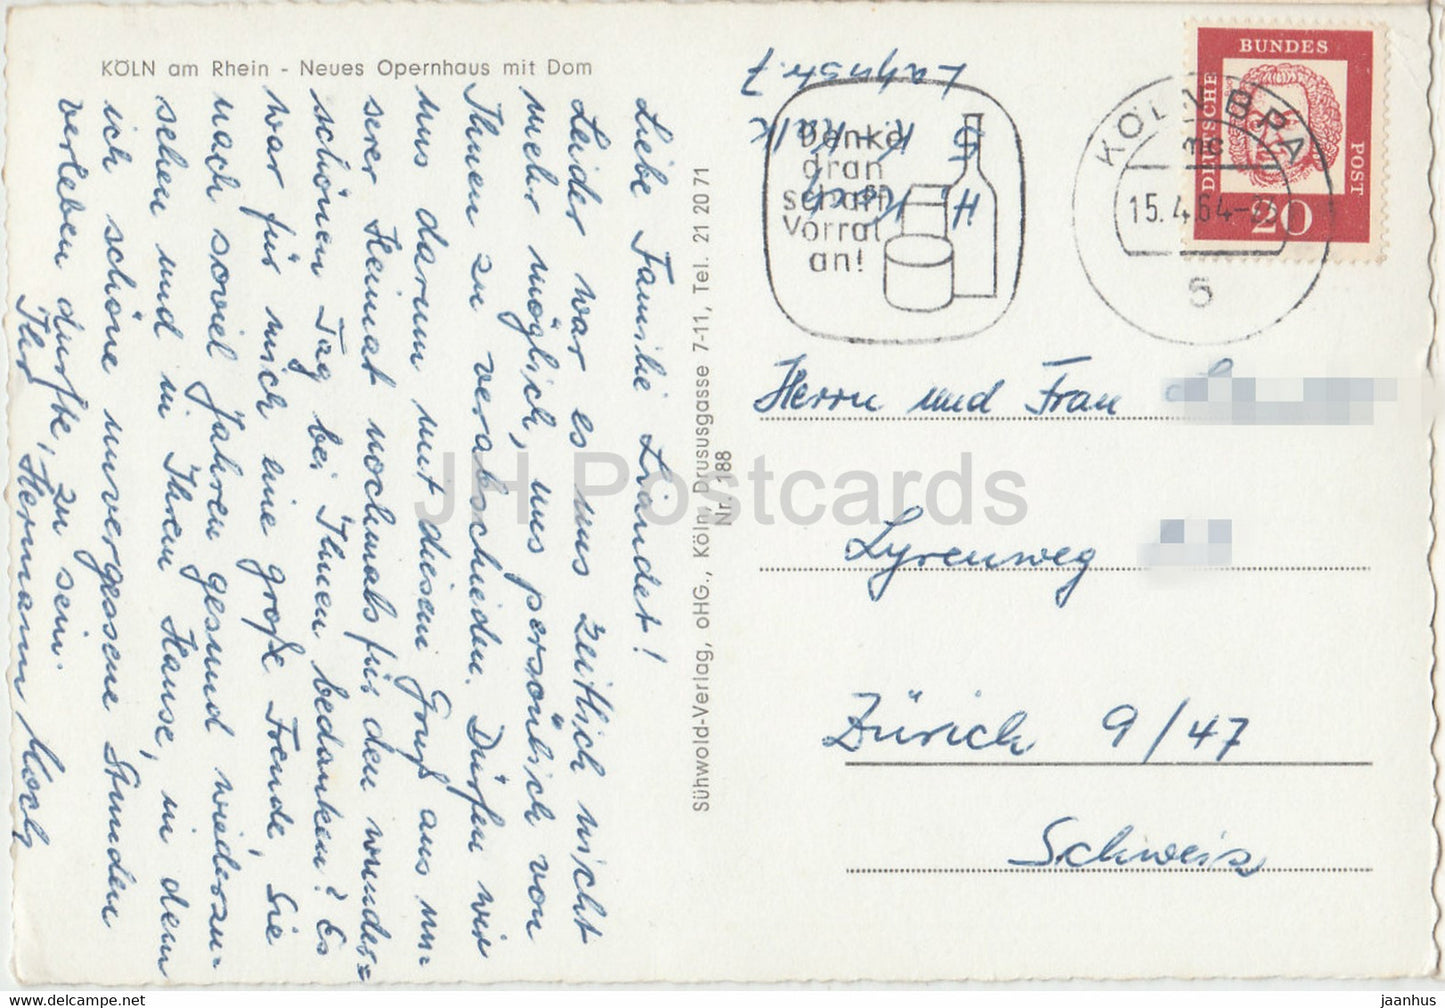 KÖLN am Rhein - Neues Opernhaus mit Dom
Liebe Familie Liandet!
Leider war es uns zeitlich nicht
mehr möglich, uns persönlich von
Ihnen zu verabschieden. Dürfen wir
uns darum mit diesem Gruß aus un-
serer Heimat nochmals für den wunder=
schönen Tag bei Ihnen bedanken? Es
war für mich eine große Freude, Sie
nach soviel Jahren gesund wiederzu-
sehen und in Ihrem Hause, in dem
ich schöne unvergessene Stunden
verleben durfte, zu sein.
Ihr Hermann Koch
Sühwold-Verlag, oHG., Köln, Drususgasse 7-11, Tel. 21 20 71
Nr. 188
H. Koch
5 K.-Kalk
Lahnstr. 7
Denke
dran
schaff
Vorrat
an!
KÖLN BPA
mc
15.4.64
s
DEUTSCHE
BUNDES
POST
20
Herrn und Frau L
Lyrenweg
Zürich 9/47
Schweiz
JH Postcards
https://www.hippostcard.com/store/jaanhus
jaanhus